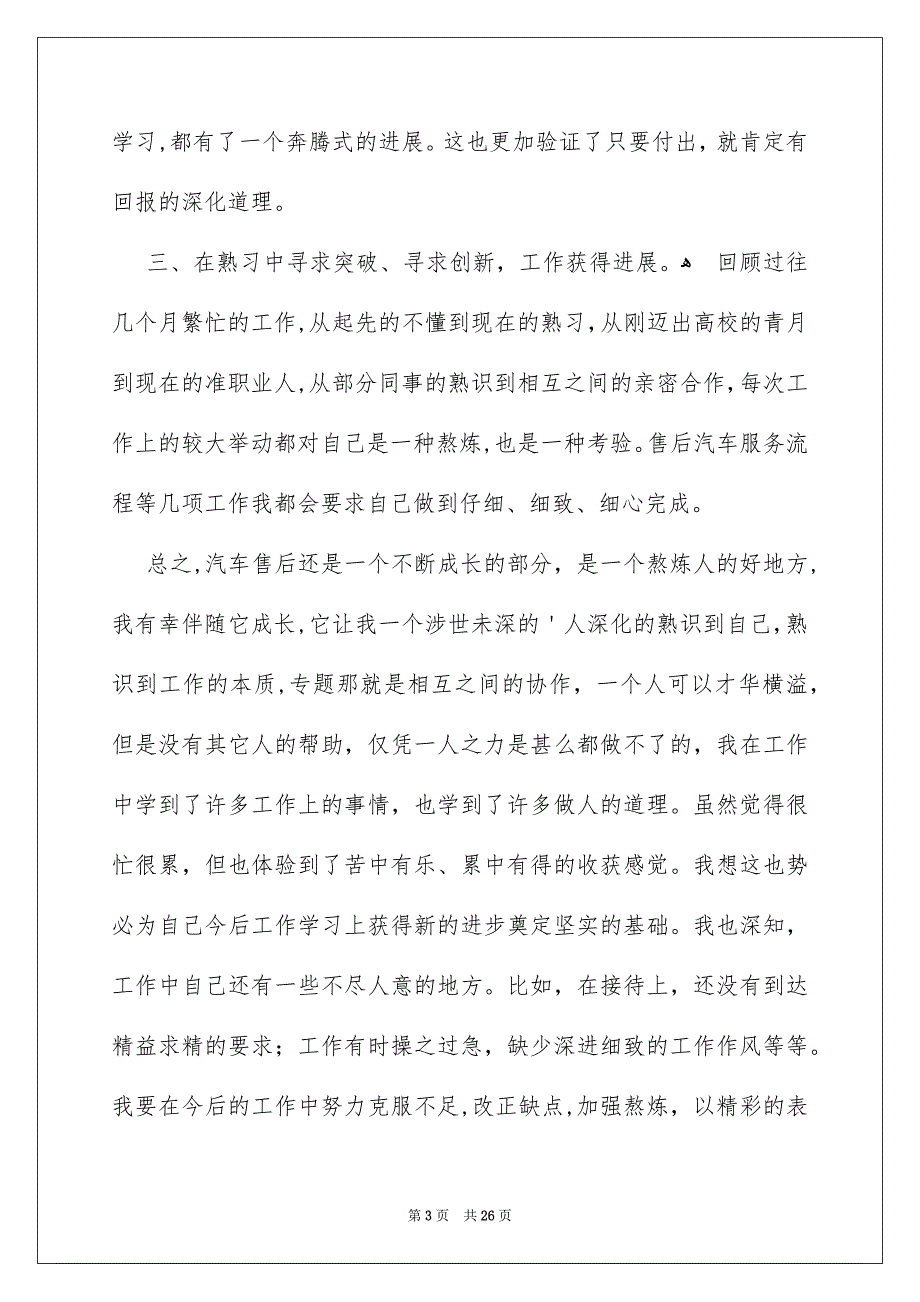 学习,都有了一个奔腾式的进展。这也更加验证了只要付出，就肯定有
回报的深化道理。
三、在熟习中寻求突破、寻求创新，工作获得进展。ﻫ 回顾过往
几个月繁忙的工作,从起先的不懂到现在的熟习,从刚迈出高校的青月
到现在的准职业人,从部分同事的熟识到相互之间的亲密合作，每次工
作上的较大举动都对自己是一种熬炼,也是一种考验。售后汽车服务流
程等几项工作我都会要求自己做到仔细、细致、细心完成。
总之,汽车售后还是一个不断成长的部分，是一个熬炼人的好地方,
我有幸伴随它成长,它让我一个涉世未深的＇人深化的熟识到自己,熟
识到工作的本质,专题那就是相互之间的协作，一个人可以才华横溢,
但是没有其它人的帮助，仅凭一人之力是甚么都做不了的，我在工作
中学到了许多工作上的事情，也学到了许多做人的道理。虽然觉得很
忙很累，但也体验到了苦中有乐、累中有得的收获感觉。我想这也势
必为自己今后工作学习上获得新的进步奠定坚实的基础。我也深知，
工作中自己还有一些不尽人意的地方。比如，在接待上，还没有到达
精益求精的要求；工作有时操之过急，缺少深进细致的工作作风等等。
我要在今后的工作中努力克服不足,改正缺点,加强熬炼，以精彩的表
第 3 页 共 26 页